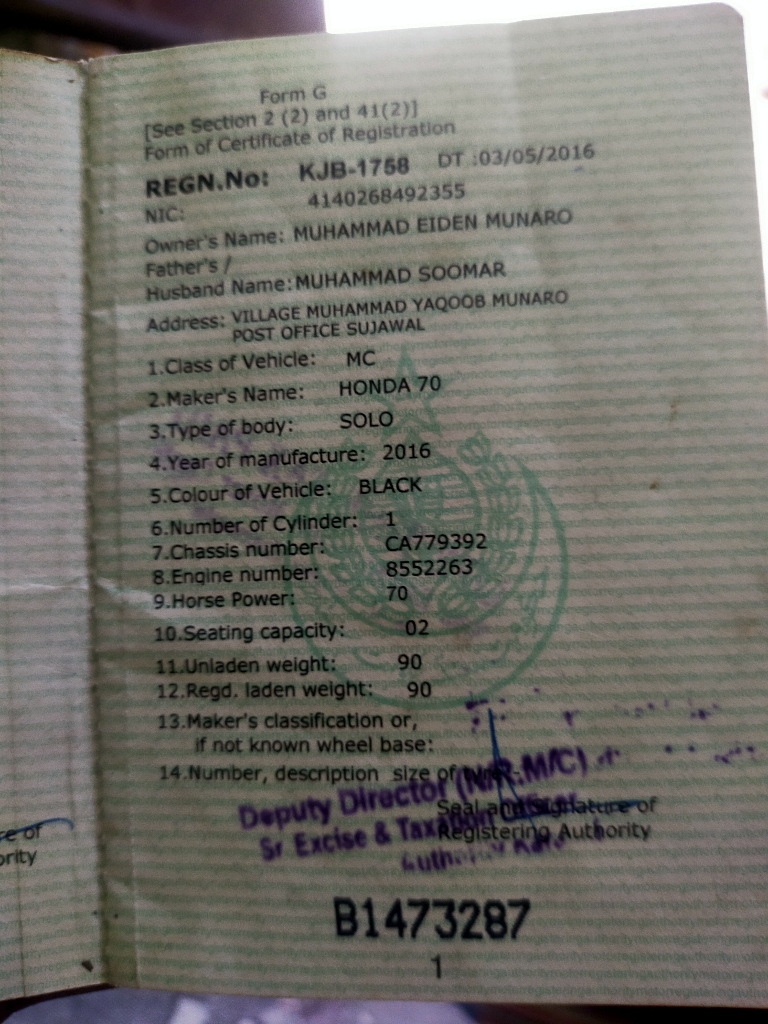 Form G
[See Section 2 (2) and 41(2)]
Form of Certificate of Registration
REGN.No: KJB-1758 DT :03/05/2016
NIC: 4140268492355
Owner's Name: MUHAMMAD EIDEN MUNARO
Father's /
Husband Name: MUHAMMAD SOOMAR
Address: VILLAGE MUHAMMAD YAQOOB MUNARO
POST OFFICE SUJAWAL
1.Class of Vehicle: MC
2.Maker's Name: HONDA 70
3.Type of body: SOLO
4.Year of manufacture: 2016
5.Colour of Vehicle: BLACK
6.Number of Cylinder: 1
7.Chassis number: CA779392
8.Engine number: 8552263
9.Horse Power: 70
10.Seating capacity: 02
11.Unladen weight: 90
12.Regd. laden weight: 90
13.Maker's classification or,
if not known wheel base:
14.Number, description size of
Deputy Director (N/R.M/C)
Seal and Signature of
Sr Excise &
Registering Authority
B1473287
1